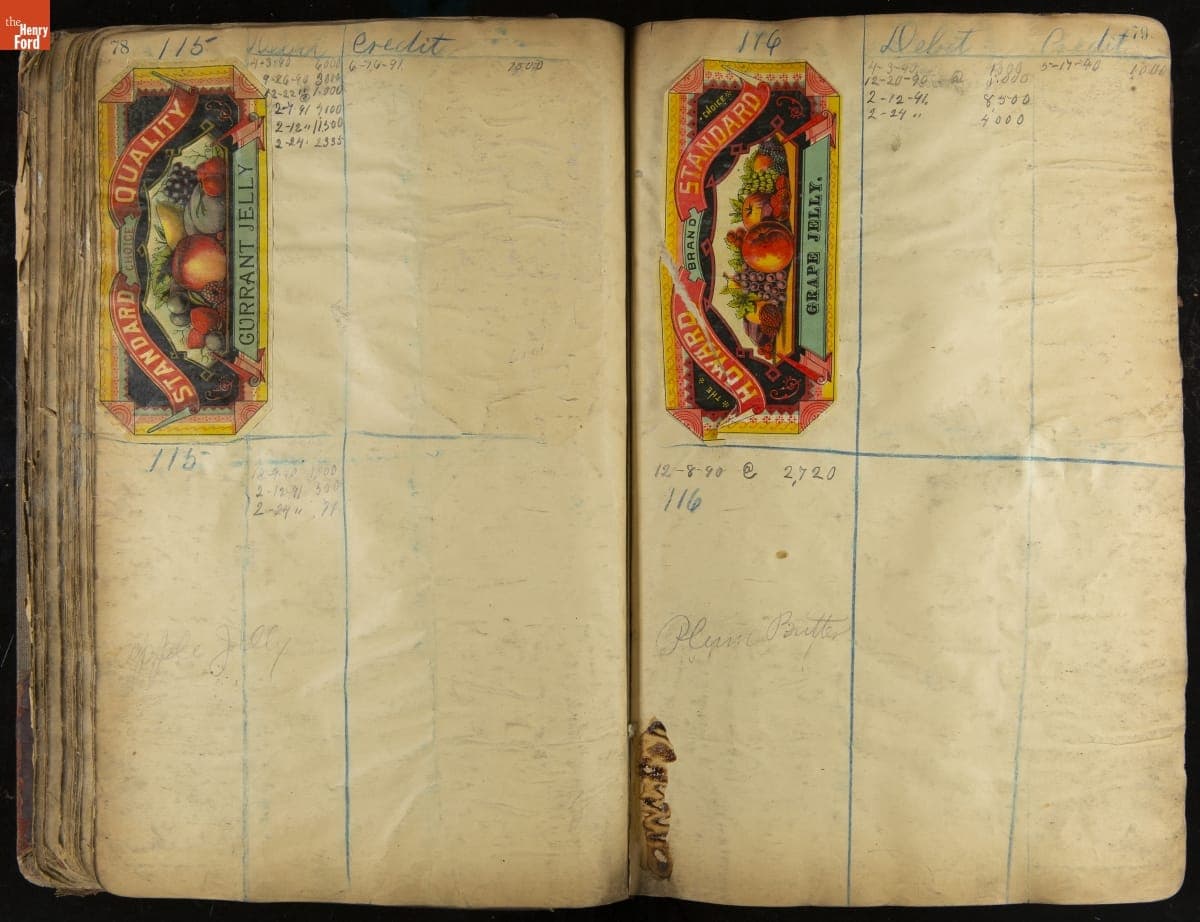 the
Henry
Ford
78 115 Debit Credit
4-3-90 6000 6-26-91 1500
9-26-90
12-22 " 1.000
2-7 91 4100
2-12 " 11,500
2-24 " 2335
STANDARD CHOICE QUALITY
CURRANT JELLY
115
2-12-91 300
2-24 "
Apple Jelly
116 Debit Credit 79
4-3-90 5-17-90 1000
12-20-90 @ 1.000
2-12-91. 8500
2-24 " 4000
THE HOWARD BRAND CHOICE STANDARD
GRAPE JELLY.
12-8-90 @ 2,720
116
Plum Butter